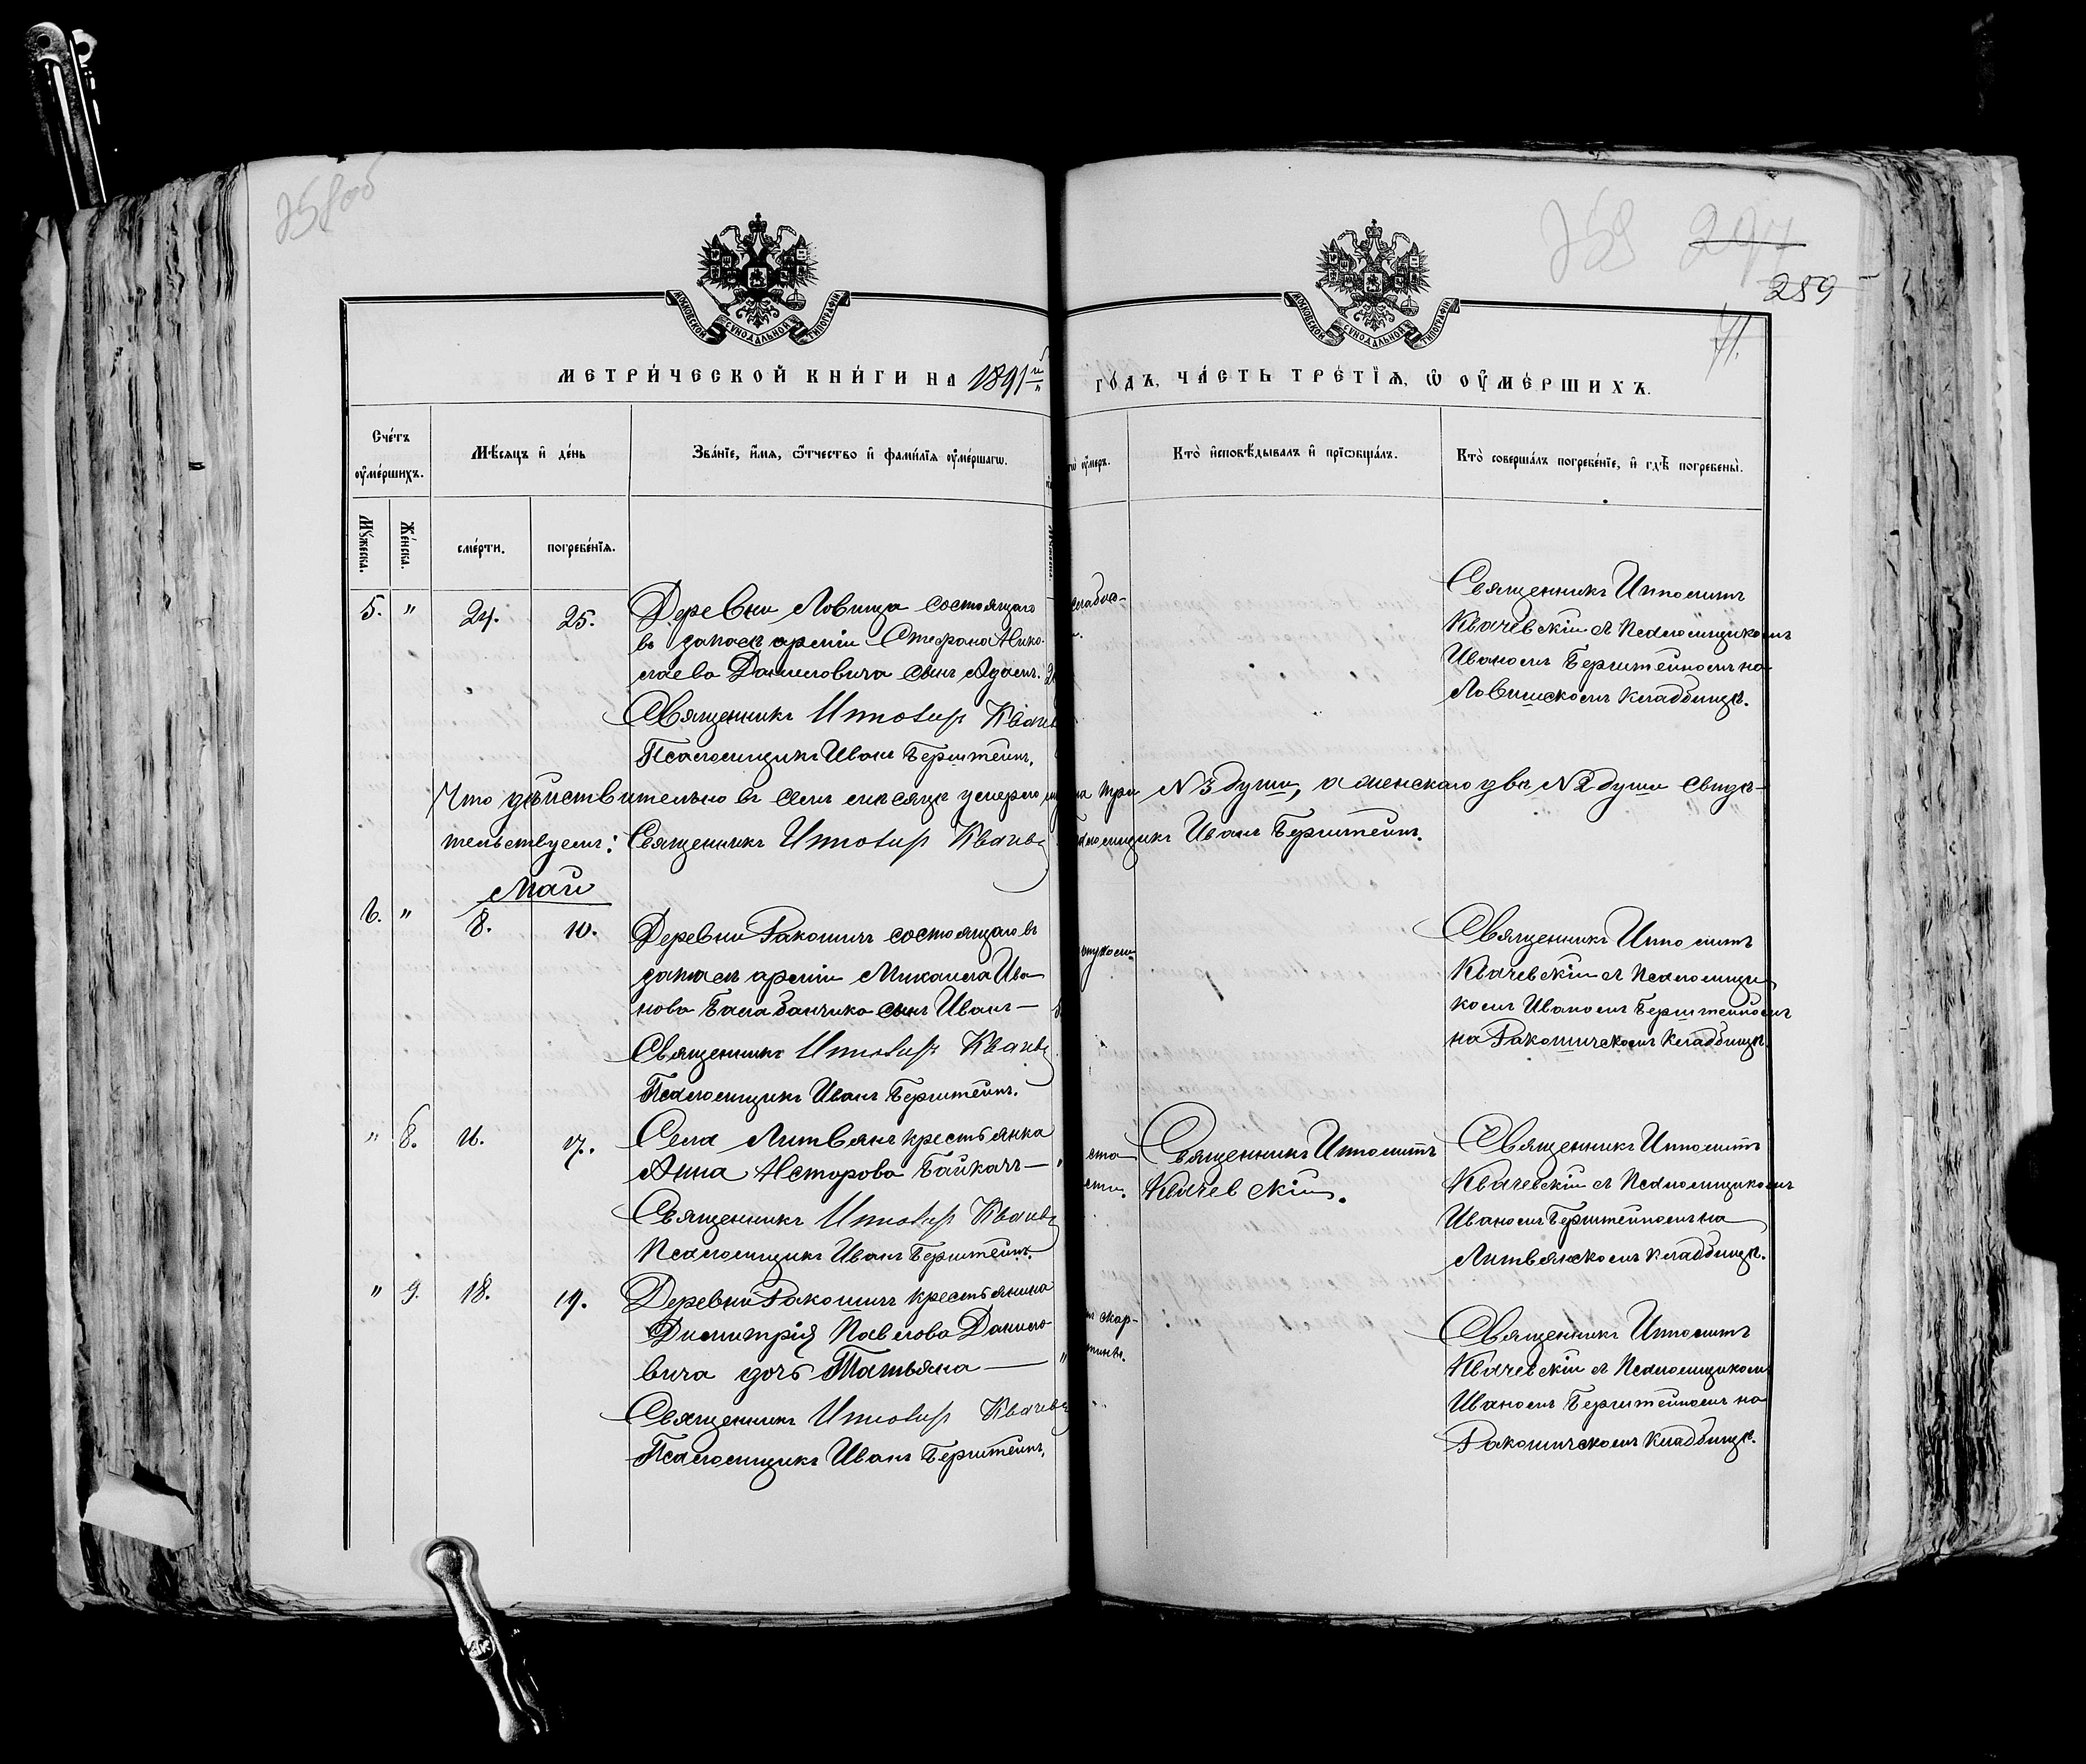 258об
259 294
289
71.
МОСКОВСКОЙ СУНОДАЛЬНОЙ ТИПОГРАФІИ
МОСКОВСКОЙ СУНОДАЛЬНОЙ ТИПОГРАФІИ
МЕТРИ́ЧЕСКОЙ КНИ́ГИ НА 1891й
ГО́ДЪ, ЧА́СТЬ ТРЕ́ТЇѦ, Ѡ ОУ҆МЕ́РШИХЪ.
Сче́тъ оу҆ме́ршихъ.
Мѣ́сѧцъ и҆ де́нь
Зва́нїе, и҆́мѧ, ѿ́чество и҆ фами́лїѧ оу҆ме́ршагѡ.
оу҆́меръ.
Кто̀ и҆сповѣ́дывалъ и҆ прїѡбща́лъ.
Кто̀ соверша́лъ погребе́нїе, и҆ гдѣ̀ погребены̀.
Мꙋ́жеска.
Же́нска.
сме́рти.
погребе́нїѧ.
5. " 24. 25.
Деревни Ловища состоящаго
въ запасѣ арміи Стефана Нико-
лаева Даниловича сынъ Адамъ.
Священникъ Ипполитъ
Псаломщикъ Иванъ Бернштейнъ.
слабос-
Священникъ Ипполитъ
Квачевскій съ Псаломщикомъ
Иваномъ Бернштейномъ на
Ловишскомъ кладбищѣ.
Что дѣйствительно въ семъ мѣсяцѣ умерло три №3 души, а женскаго двѣ №2 души свидѣ-
тельствуемъ: Священникъ Ипполитъ Иванъ Бернштейнъ.
Май
6. " 8. 10.
Деревни Ракошичъ состоящаго въ
запасѣ арміи Михаила Ива-
нова Балабанчика сынъ Иванъ —
Священникъ Ипполитъ
Псаломщикъ Иванъ Бернштейнъ.
Священникъ Ипполитъ
Квачевскій съ Псаломщи-
комъ Иваномъ Бернштейномъ
на Ракошичскомъ кладбищѣ.
" 8. 16. 17.
Села Литвянъ крестьянка
Анна Несторова Байкачъ —
Священникъ Ипполитъ
Псаломщикъ Иванъ Бернштейнъ.
Священникъ Ипполитъ
Квачевскій.
Священникъ Ипполитъ
Квачевскій съ Псаломщикомъ
Иваномъ Бернштейномъ на
Литвянскомъ кладбищѣ.
" 9. 18. 19.
Деревни Ракошичъ крестьянина
Димитрія Павлова Данило-
вича дочь Татьяна —
Священникъ Ипполитъ
Псаломщикъ Иванъ Бернштейнъ.
скар-
тины.
Священникъ Ипполитъ
Квачевскій съ Псаломщикомъ
Иваномъ Бернштейномъ на
Ракошичскомъ кладбищѣ.